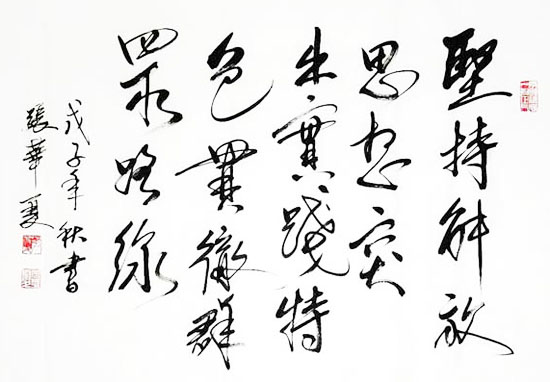 堅持解放
思想突
出實踐特
色貫徹群
眾路線
戊子年秋書
張華夏